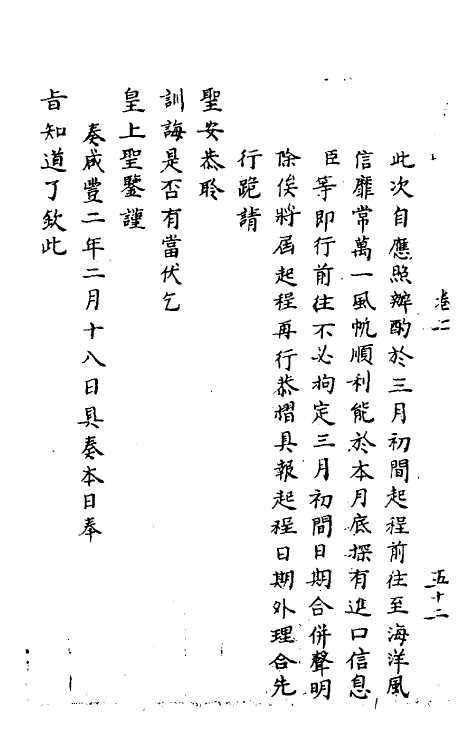 卷二
五十二
此次自應照辦酌於三月初間起程前往至海洋風
信靡常萬一風帆順利能於本月底探有進口信息
臣等即行前往不必拘定三月初間日期合併聲明
除俟將屆起程再行恭摺具報起程日期外理合先
行跪請
聖安恭聆
訓誨是否有當伏乞
皇上聖鑒謹
奏咸豐二年二月十八日具奏本日奉
旨知道了欽此